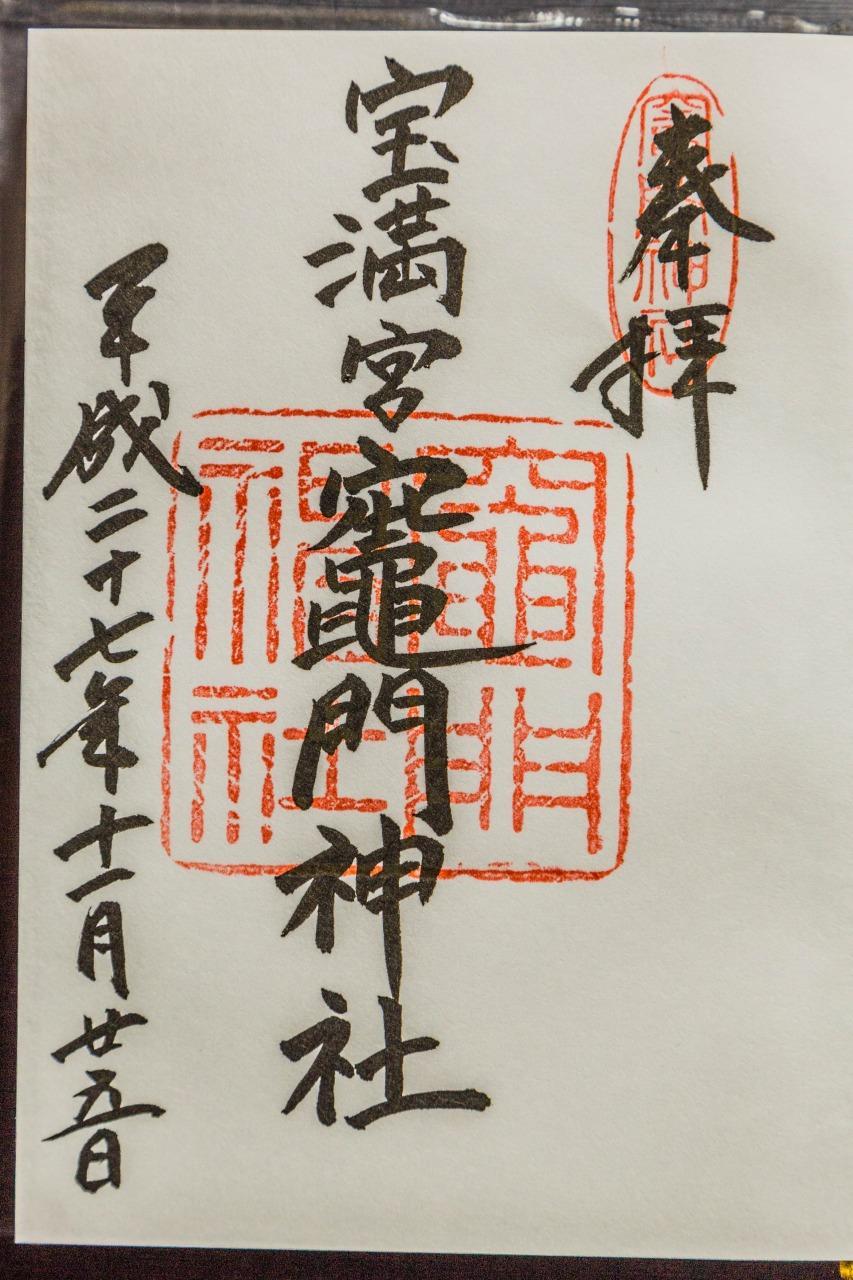 奉拝
宝満宮竈門神社
平成二十七年十一月廿五日
竈門神社